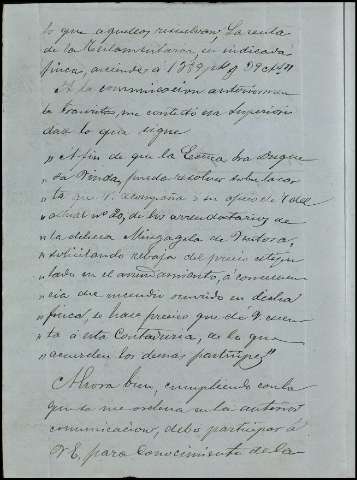 lo que aquellos resuelvan. La renta
de la Testamentaria, en indicada
finca, asciende á 1389 pts y 29 cts.
A la comunicacion anteriormen
te transcrita, me contestó esa Superiori
dad lo que sigue
"A fin de que la Exma Sra Duque
"sa Viuda, pueda resolver sobre la car
"ta que V. acompaña á su oficio de 4 del
"actual nº 20, de los arrendatarios de
"la dehesa
"solicitando rebaja del precio estipu
"lado en el arrendamiento, á consecuen
"cia del incendio ocurrido en dicha
"finca, se hace preciso que dé V cuen
"ta á esta Contaduria, de lo que
"acuerden los demas participes"
Ahora bien, cumpliendo con lo
que se me ordena en la anterior
comunicacion, debo participar á
V.E. para conocimiento de la